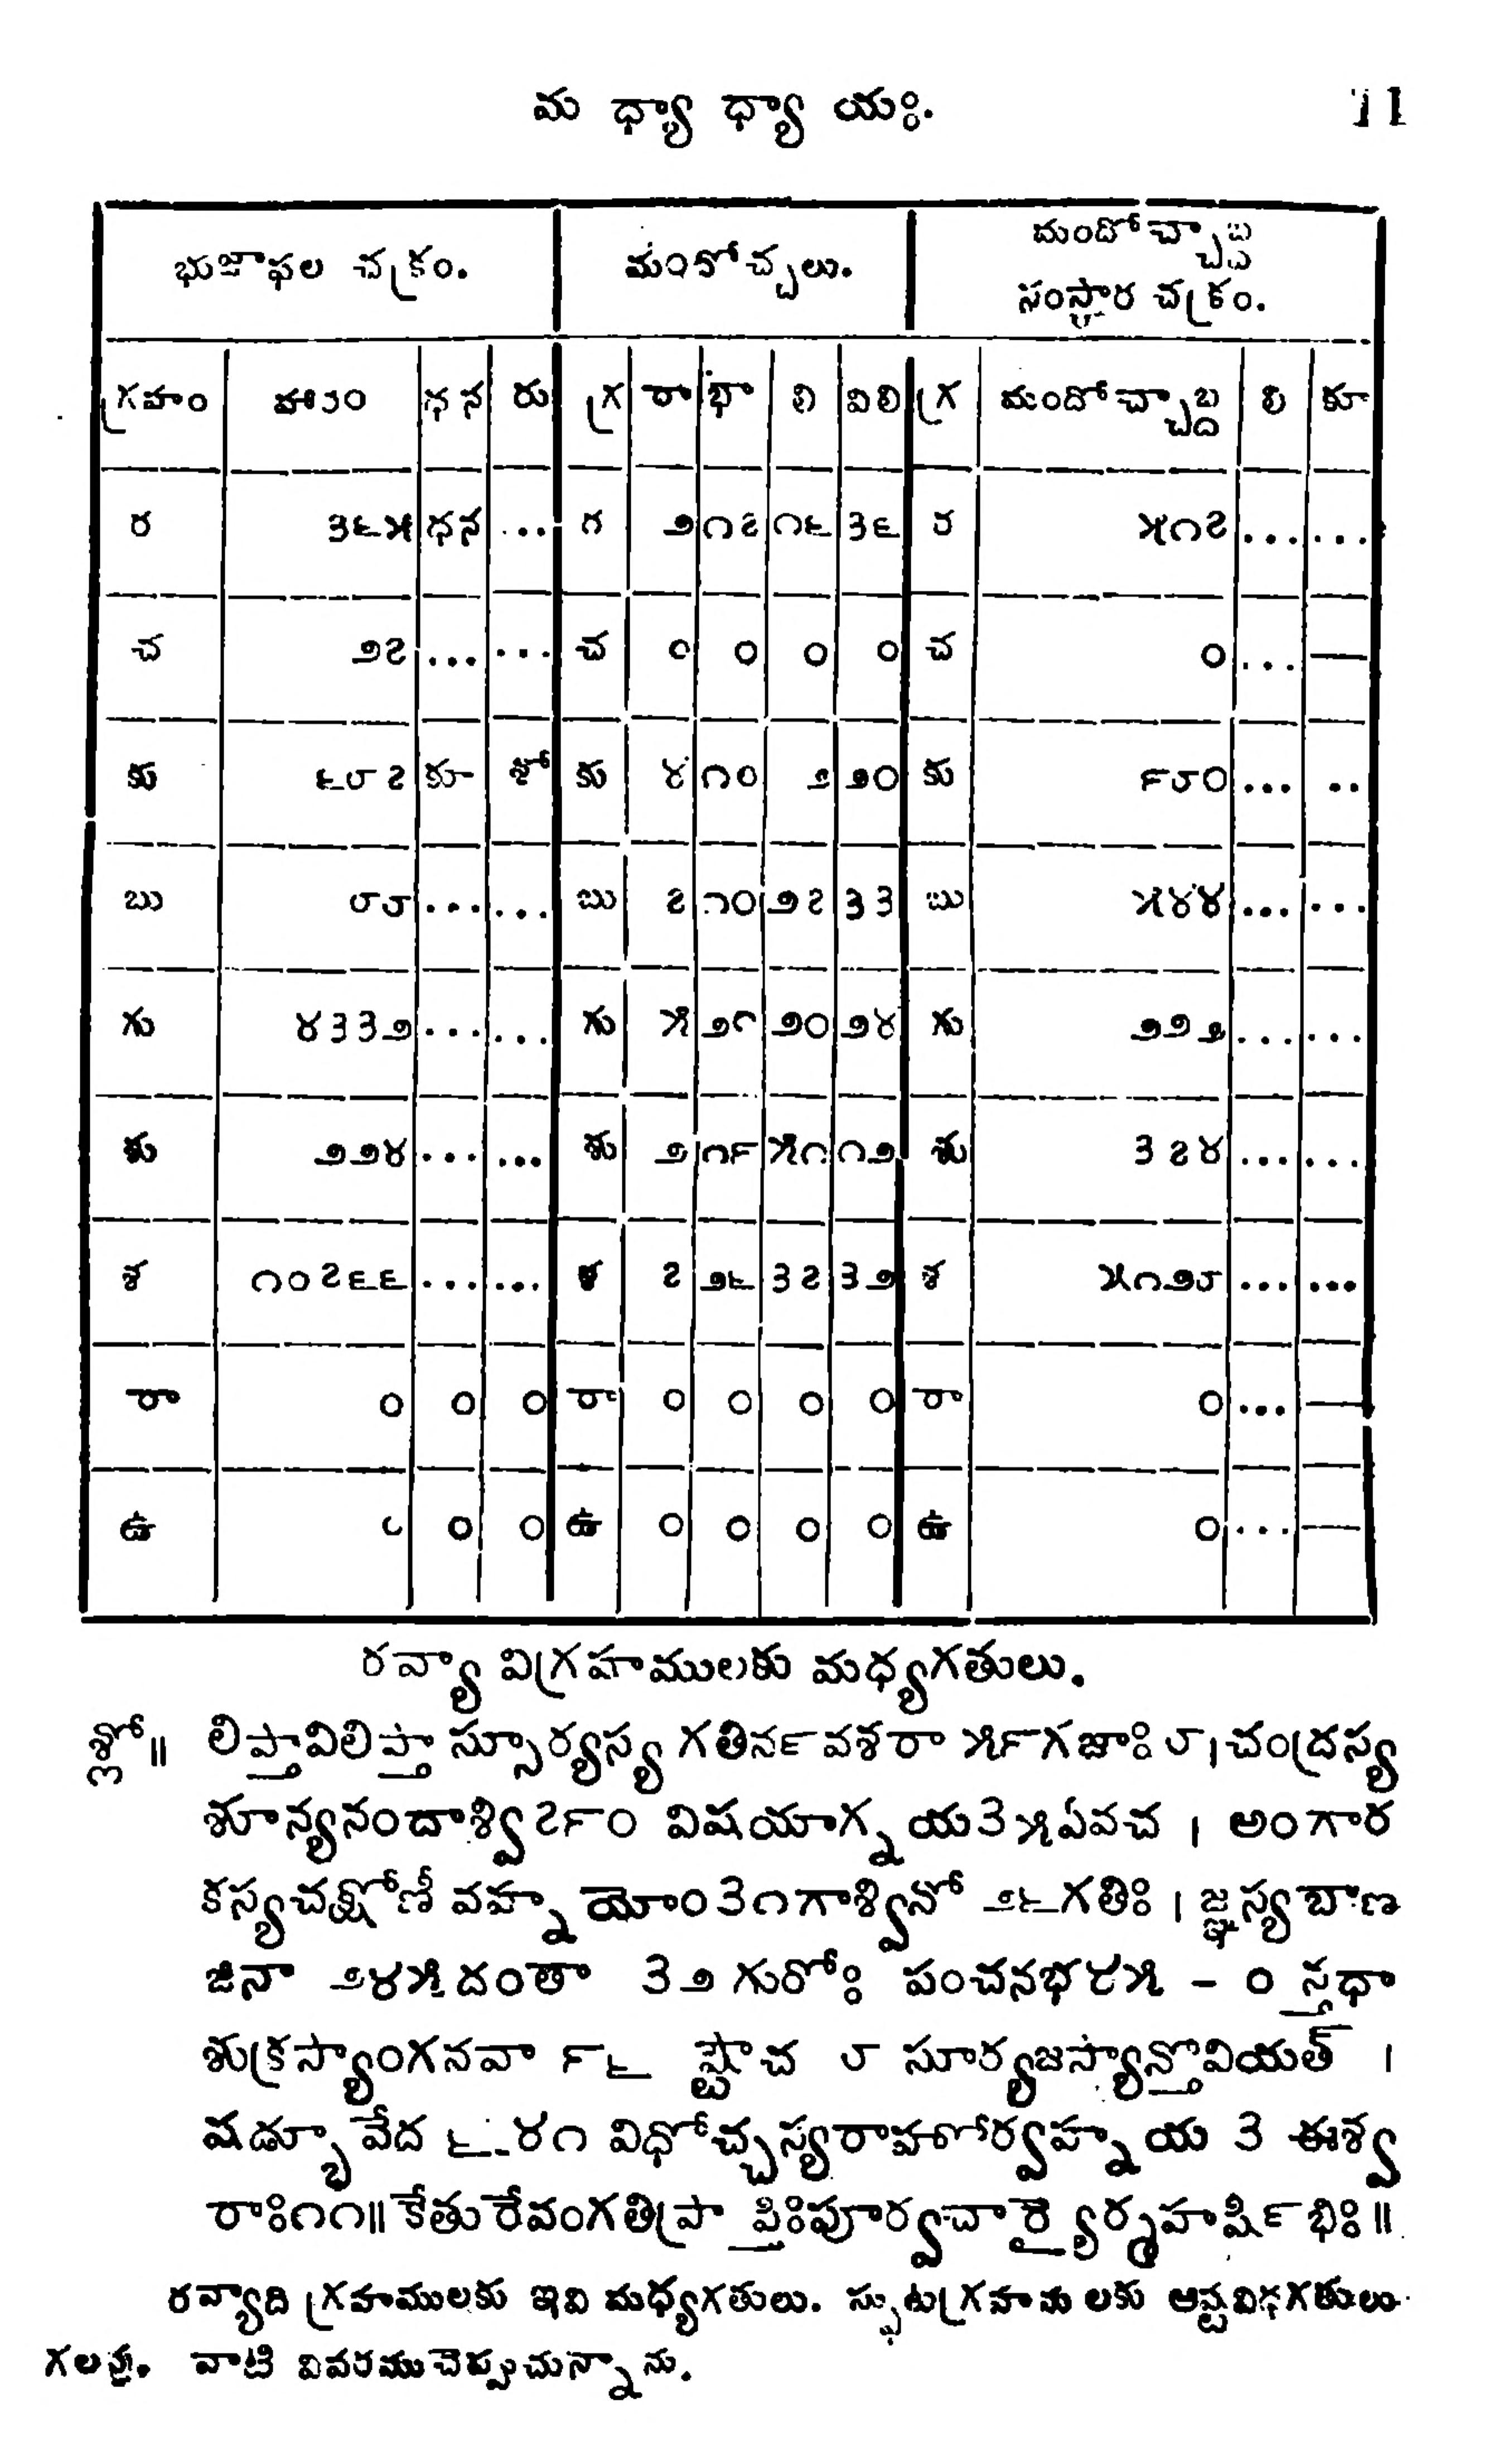 మ ధ్యా ధ్యా యః. 11
భుజాఫల చక్రం. మందోచ్చలు. మందోచ్చాబ్ద
సంస్కార చక్రం.
గ్రహం హారం ధన రు గ్ర రా భా లి విలి గ్ర మందోచ్చాబ్ద లి కూ
ర ౩౬౫ ధన ... ౨ ౧౭ ౧౬ ౩౬ ర ౫౧౭ ... ...
చ ౨౭ ... ... చ ౦ ౦ ౦ ౦ చ ౦ ... —
కు ౬౮౭ కూ కు ౪ ౧౦ ౨ ౨౦ కు ౯౮౦ ... ..
బు ౮౮ ... ... బు ౭ ౧౦ ౨౭ ౩౩ బు ౫౪౪ ... ...
గు ౪౩౩౨ ... ... గు ౫ ౨౧ ౨౦ ౨౪ గు ౨౨౨ ... ...
శు ౨౨౪ ... ... శు ౨ ౧౯ ౫౧ ౧౨ శు ౩౭౪ ... ...
శ ౧౦౭౬౬ ... ... శ ౭ ౨౬ ౩౭ ౩౨ శ ౫౧౨౮ ... ...
రా ౦ ౦ ౦ రా ౦ ౦ ౦ ౦ రా ౦ ... —
ఉ ౦ ౦ ౦ ఉ ౦ ౦ ౦ ౦ ఉ ౦ ... —
రవ్యా విగ్రహములకు మధ్యగతులు.
శ్లో॥ లిప్తావిలిప్తా స్సూర్యస్య గతిర్నవశరా ౫౯గజాః ౮।చంద్రస్య
శూన్యనందాశ్వి౭౯౦ విషయాగ్న య౩౫ఏవచ । అంగార
కస్యచక్షోణీ వహ్న యోం౩౧గాశ్వినో ౨౬గతిః । జ్ఞస్యబాణ
జినా ౨౪౫దంతా ౩౨ గురోః పంచనభ౪౫ - ౦ స్తధా
శుక్రస్యాంగనవా ౯౬ ష్టౌచ ౮ సూర్యజస్యాన్తోవియత్ ।
షడ్భూ వేద ౬-౪౧ విధోచ్చస్యరాహోర్వహ్న య ౩ ఈశ్వ
రాః౧౧॥ కేతు రేవంగతిప్రా ప్తిఃపూర్వచార్యైర్మహర్షిభిః॥
రవ్యాది గ్రహములకు ఇవి మధ్యగతులు. స్ఫుటగ్రహము లకు అష్టవిధగతులు
గలవు. వాటి వివరముచెప్పుచున్నా ను.